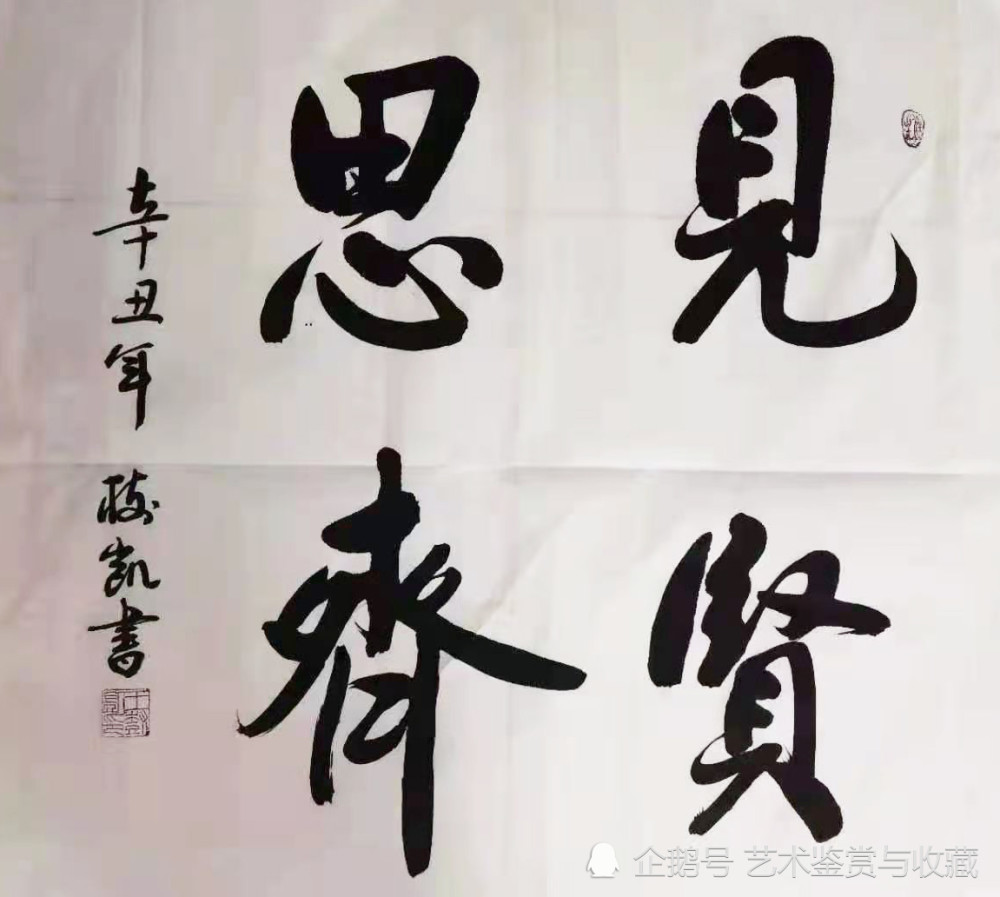 見賢
思齊
辛丑年 樹凱書
企鹅号 艺术鉴赏与收藏